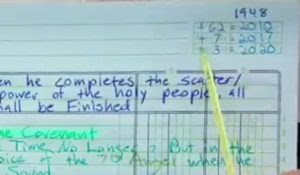 1948
+ 62 = 2010
+ 7 = 2017
+ 3 = 2020
he completes the scatter/
power of the holy people, all
be Finished
Covenant
Time No Longer? But in the
of the 7th Angel when he
Sound